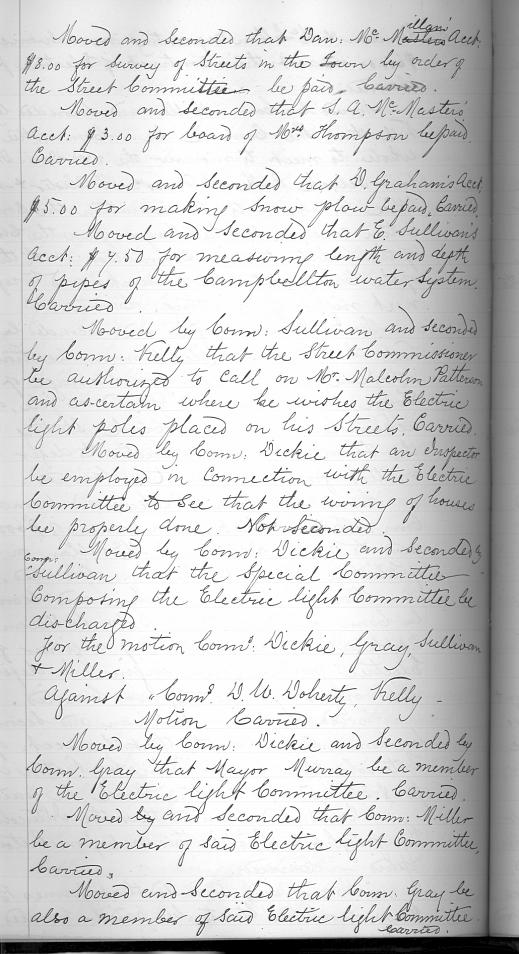 Moved and seconded that Dan: Mc Millan's Acct:
$8.00 for survey of Streets in the Town by order of
the Street Committee be paid. Carried.
Moved and seconded that S. A. McMaster's
Acct: $3.00 for board of Mrs Thompson be paid.
Carried.
Moved and seconded that D. Graham's Acct.
$5.00 for making snow plow be paid. Carried
Moved and seconded that E. Sullivan's
Acct: $7.50 for measuring length and depth
of pipes of the Campbellton water System.
Carried.
Moved by Coun: Sullivan and seconded
by Coun: Kelly that the Street Commissioner
be authorized to call on Mr. Malcolm Patterson
and ascertain where he wishes the Electric
light poles placed on his Streets. Carried.
Moved by Coun: Dickie that an Inspector
be employed in connection with the Electric
Committee to see that the wiring of houses
be properly done. Not Seconded.
Moved by Coun: Dickie and seconded by
Coun: Sullivan that the Special Committee
Composing the Electric light Committee be
discharged.
For the motion Couns: Dickie, Gray, Sullivan
& Miller.
Against " Couns. D. W. Doherty, Kelly -
Motion Carried.
Moved by Coun: Dickie and Seconded by
Coun. Gray that Mayor Murray be a member
of the Electric light Committee. Carried.
Moved by and seconded that Coun: Miller
be a member of said Electric light Committee.
Carried.
Moved and Seconded that Coun: Gray be
also a member of said Electric light Committee.
Carried.